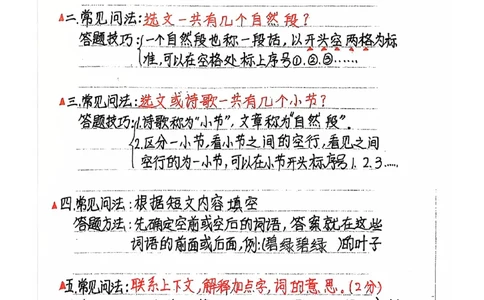 ▲二.常见问法:选文一共有几个自然段?
答题技巧:(一个自然段也称一段话,以开头空两格为标
准,可以在空格处标上序号①.②.③......
▲三.常见问法:选文或诗歌一共有几个小节?
答题技巧:1.诗歌称为“小节”,文章称为“自然段”.
2.区分一小节,看小节之间的空行,看见之间
空行的为一小节,可以在小节开头标序号1.2.3.....
▲四.常见问法:根据短文内容填空
答题方法:先确定空前或空后的词语,答案就在这些
词语的前面或后面,例:(碧绿碧绿 )的叶子
▲五.常见问法:联系上下文,解释加点字,词的意思.(2分)